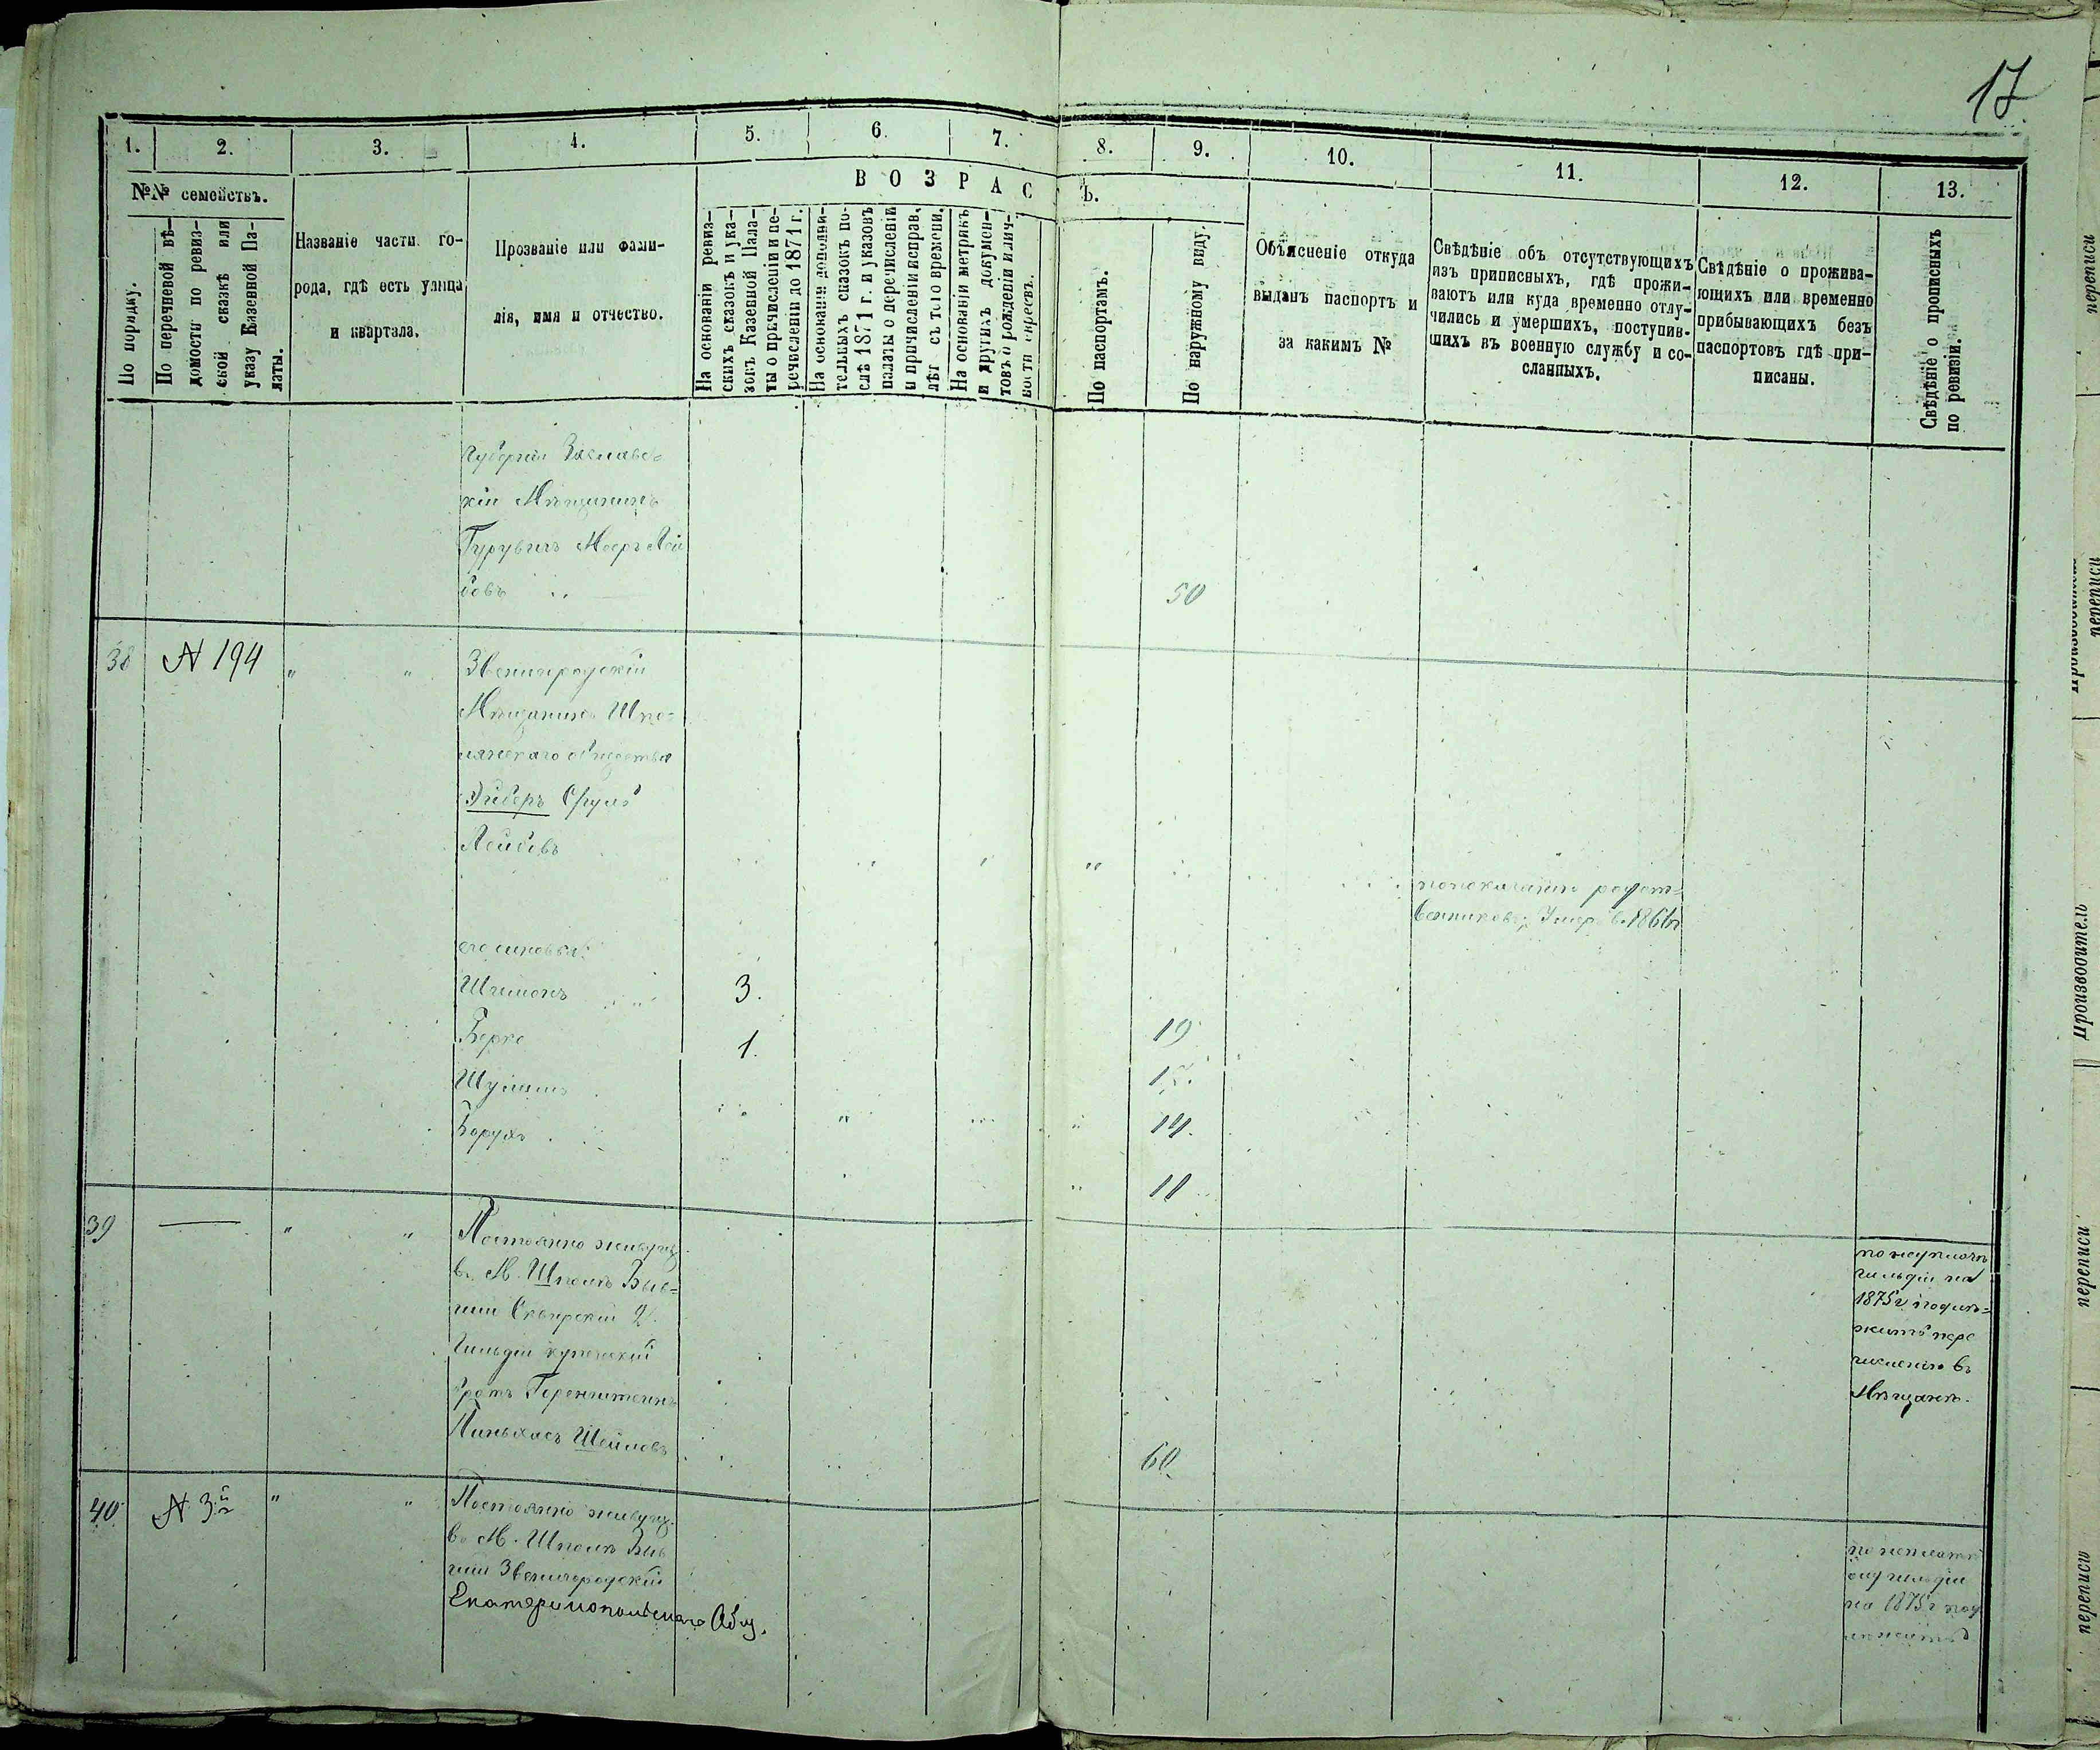 17
1. 2. 3. 4. 5. 6. 7. 8. 9. 10. 11. 12. 13.
№№ семействъ.
В О З Р А С Ъ.
По порядку.
По перечневой вѣ-
домости по ревиз-
ской сказкѣ или
указу Казенной Па-
латы.
Названіе части го-
рода, гдѣ есть улица
и квартала.
Прозваніе или фами-
лія, имя и отчество.
На основаніи ревиз-
скихъ сказокъ и ука-
зовъ Казенной Пала-
ты о причисленіи и пе-
речисленіи до 1871 г.
На основаніи дополни-
тельныхъ сказокъ по-
слѣ 1871 г. и указовъ
палаты о перечисленіи
и причисленіи исправ.
лѣт съ того времени.
На основаніи метрикъ
и другихъ докумен-
товъ о рожденіи и лич-
ности евреевъ.
По паспортамъ.
По наружному виду.
Объясненіе откуда
выданъ паспортъ и
за какимъ №
Свѣдѣніе объ отсутствующихъ
изъ приписныхъ, гдѣ прожи-
ваютъ или куда временно отлу-
чились и умершихъ, поступив-
шихъ въ военную службу и со-
сланныхъ.
Свѣдѣніе о прожива-
ющихъ или временно
прибывающихъ безъ
паспортовъ гдѣ при-
писаны.
Свѣдѣніе о прописныхъ
по ревизіи.
Губерніи Заславс-
кій Мѣщанинъ
Гурувичъ Мееръ Лей
бовъ 50
38 N 194 " " Звенигородскій
Мѣщанинъ Шпо-
лянскаго общества
Эйберъ Сруль
Лейбовъ
по показанію родст-
венниковъ Умеръ в. 1866г
его сыновья:
Шлемонъ 3. 19
Берко 1. 15.
Шулимъ 14.
Борухъ 11
39 — " " Постоянно живущ.
в. М. Шполѣ Быв-
шій Сквирскій 2.
Гильдіи купеческій
братъ Горенштейнъ
Пиньхасъ Шейловъ 60
гильдіи на
1875 г подле-
житъ пере
численію въ
Мѣщане.
40 N 3й " " Постоянно живущ.
в. М. Шполѣ Быв
шій Звенигородскій
Екатеринопольскаго Общ.
гильдіи
на 1875 г под
лежитъ
переписи
переписи
Производитель
переписи
переписи